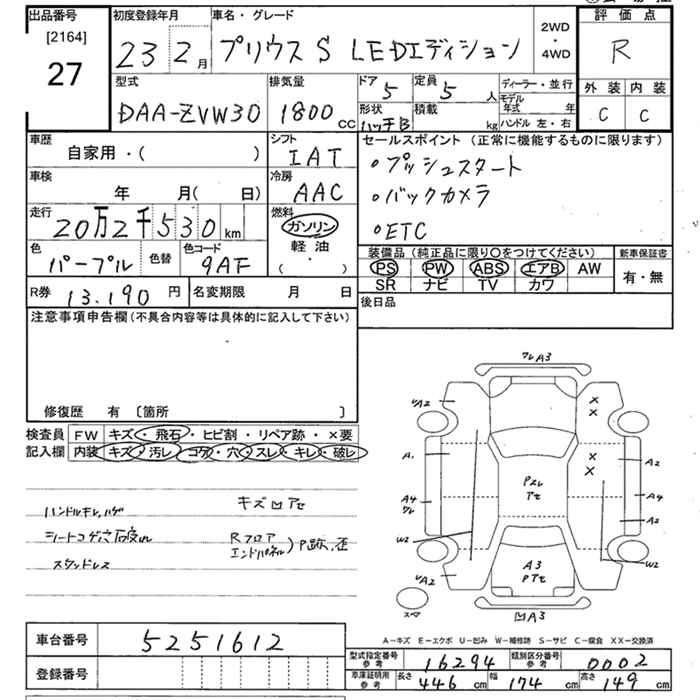 出品番号 初度登録年月 車名・グレード 評価点
[2164]
27
23 2月 プリウス S LEDエディション 2WD・4WD R
型式 排気量 ドア 定員 ディーラー・並行 外装 内装
DAA-ZVW30 1800cc 5 5人 モデル年式 年 C C
形状 積載 ハンドル 左・右
ハッチB kg
車歴 シフト セールスポイント(正常に機能するものに限ります)
自家用・( ) IAT
車検 冷房
年 月( 日) AAC
走行 燃料
20万2千530km ガソリン
軽油
( ・ )
色 色替 色コード
パープル 9AF
・プッシュスタート
・バックカメラ
・ETC
装備品(純正品に限り○をつけてください) 新車保証書
PS PW ABS エアB AW 有・無
SR ナビ TV カワ
R券 13,190円 名変期限 月 日 後日品
注意事項申告欄(不具合内容等は具体的に記入して下さい)
修復歴 有 〔箇所 〕
検査員 FW キズ・飛石・ヒビ割・リペア跡・×要
記入欄 内装 キズ・汚レ・コゲ・穴・スレ・キレ・破レ
ハンドルキレ,ハゲ キズ凹アセ
シートコゲ穴破れ Rフロア
エンドパネル)P跡、歪
スタッドレス
ワレA3
UA2
×
×
A.
×
×
A2
Pスレ
アセ
A4
ワレ
A4
A2
W2
W2
UA2
A3
Pアセ
スペア
凹A3
A-キズ E-エクボ U-凹み W-補修跡 S-サビ C-腐食 XX-交換済
車台番号 5251612
登録番号
型式指定番号 参考 16294 類別区分番号 参考 0002
車庫証明用 参考 長さ 446cm 幅 174cm 高さ 149cm